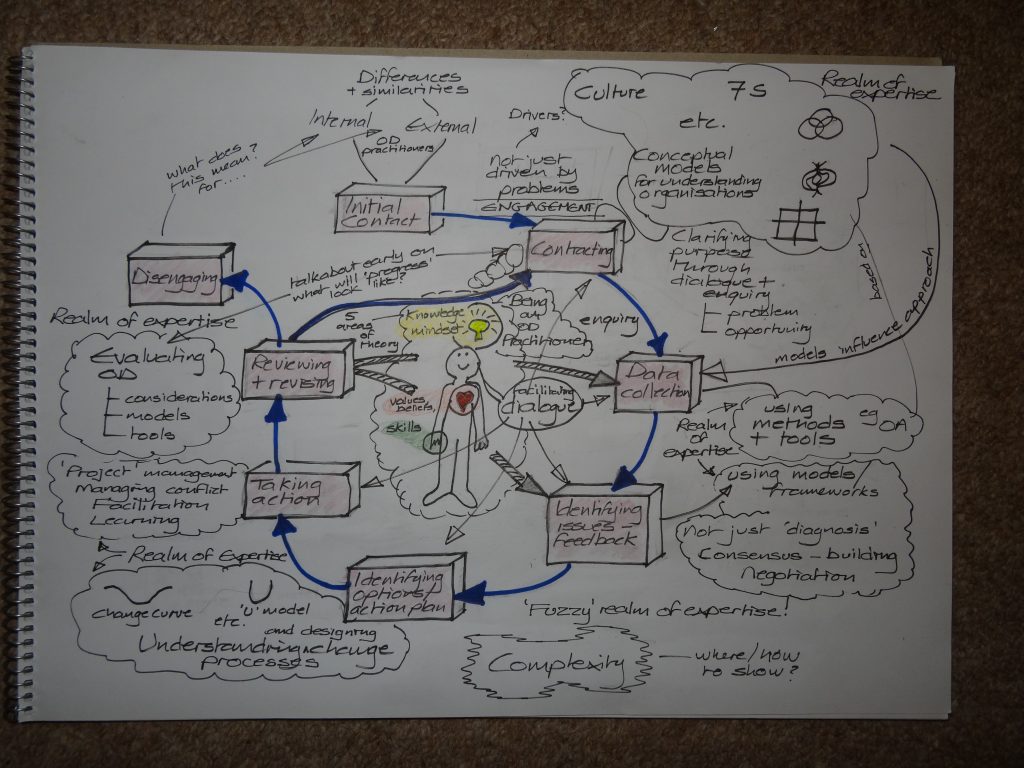 Differences
+ similarities
Internal
External
OD
practitioners
what does
this mean?
for....
Initial
Contact
Drivers?
Not just
driven by
problems
ENGAGEMENT
Culture
7S
etc.
Realm of
expertise
Conceptual
models
for understanding
organisations
Contracting
Clarifying
purpose
through
dialogue +
enquiry
problem
opportunity
based on
models influence approach
Disengaging
talk about early on
what will 'progress'
look like?
Realm of expertise
Evaluating
OD
considerations
models
tools
Reviewing
+ revising
5
areas
of
theory
Knowledge
mindset
Being
an
OD
Practitioner
enquiry
values
beliefs,
skills
facilitating
dialogue
Data
collection
Realm
of
expertise
using
methods
+ tools
eg
OA
using models
frameworks
Not just 'diagnosis'
Consensus-building
Negotiation
Identifying
issues -
feedback
'Project' management
Managing conflict
Facilitation
Learning
Taking
action
Realm of Expertise
change curve
'U' model
etc.
and designing
Understanding change
processes
Identifying
options /
action plan
'Fuzzy' realm of expertise!
Complexity
where/how
to show?